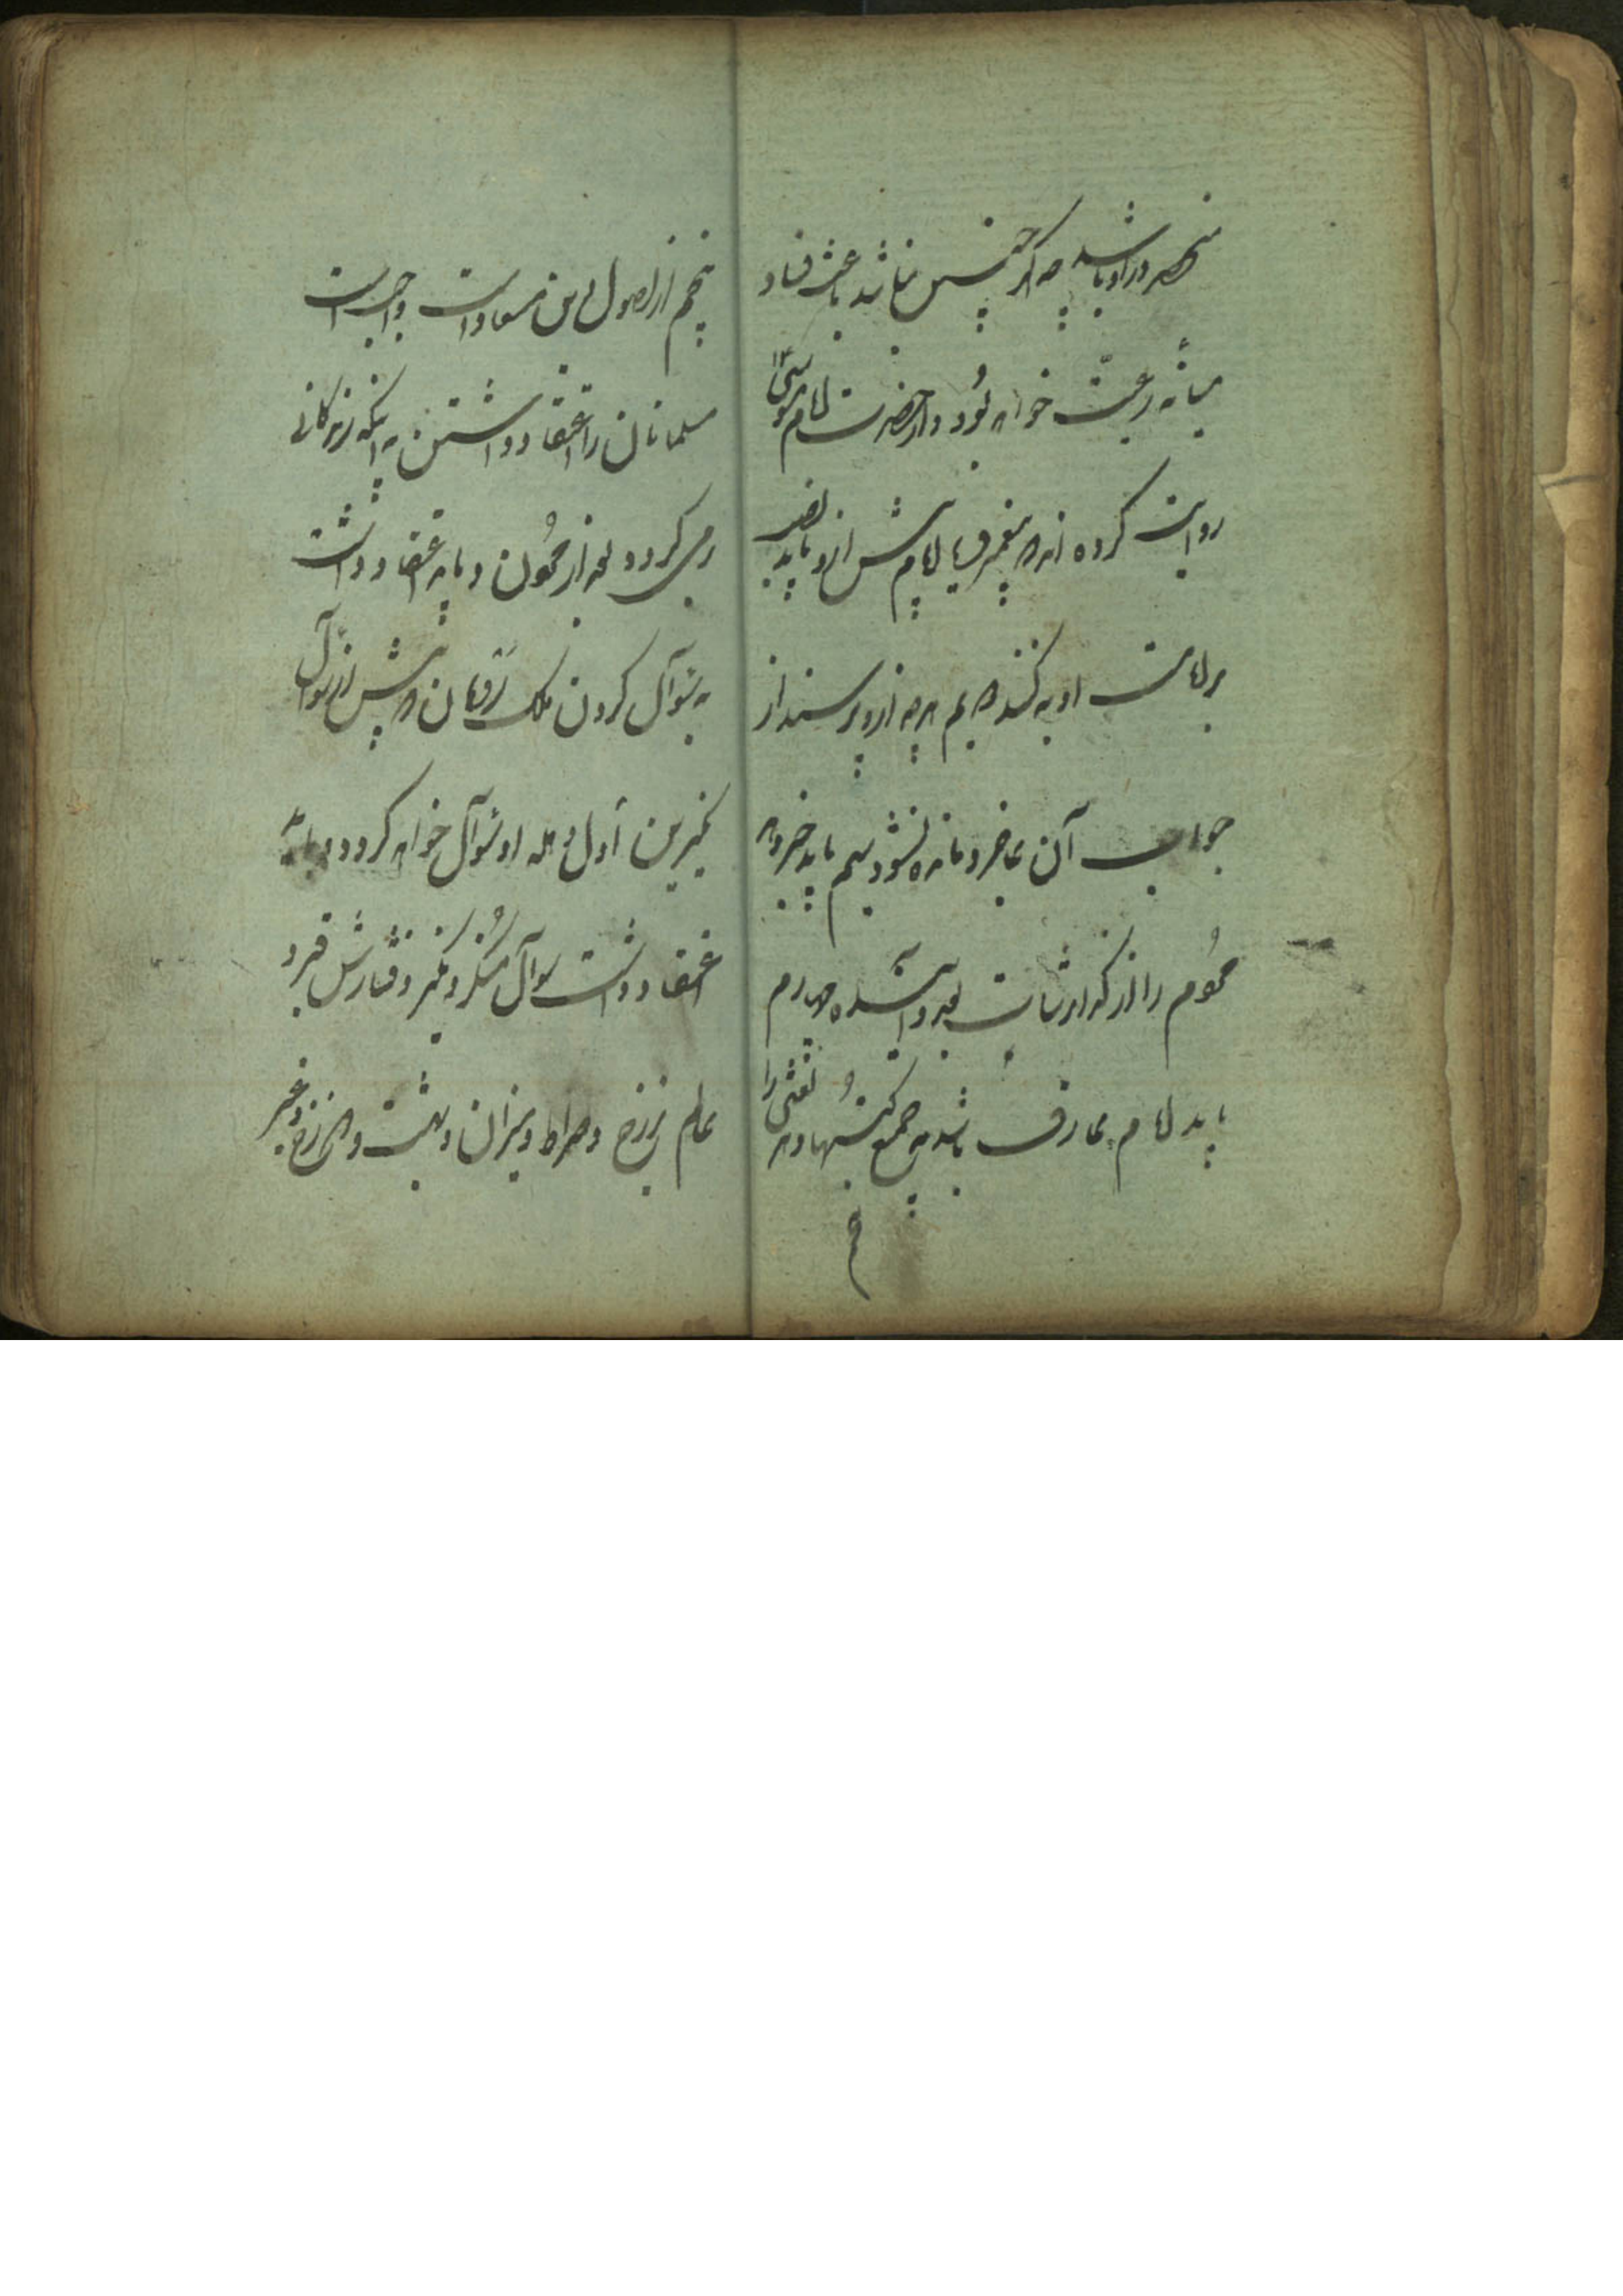 منحصر در او باشد چه اگر چنین نباشد باعث فساد
میانه رعیت خواهد بود و از حضرت امام موسی
روایت کرده اند که پیغمبر یا امام پیش از او باید نص
بر امامت او بکند دویم هرچه از او پرسند از
جواب آن عاجز و مانده نشود سیم باید خبر دهد
مردم را از گذارشات بعد و آینده چهارم
باید امام عارف باشد به جمیع کتبها و هر لغتی را
پنجم از اصول دین معاد است واجبست
مسلمانان را اعتقاد داشتن به اینکه زندگانی
می گردد بعد از مردن و باید اعتقاد داشت
به سؤال کردن ملک رومان که پیش از سؤال
نکیرین اول وهله او سؤال خواهد کرد و باید
اعتقاد داشت سؤال منکر و نکیر و فشارش قبر و
عالم برزخ و صراط و میزان و بهشت و دوزخ و غیر